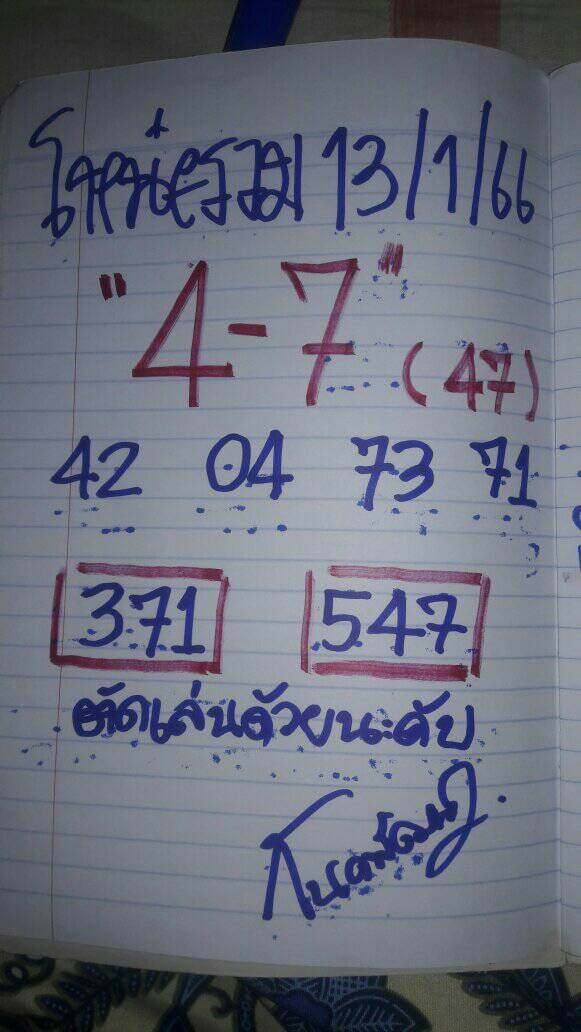 13/1/66
"4-7"
(47)
42 04 73 71
371 547
คัดเล่นด้วยนะคับ